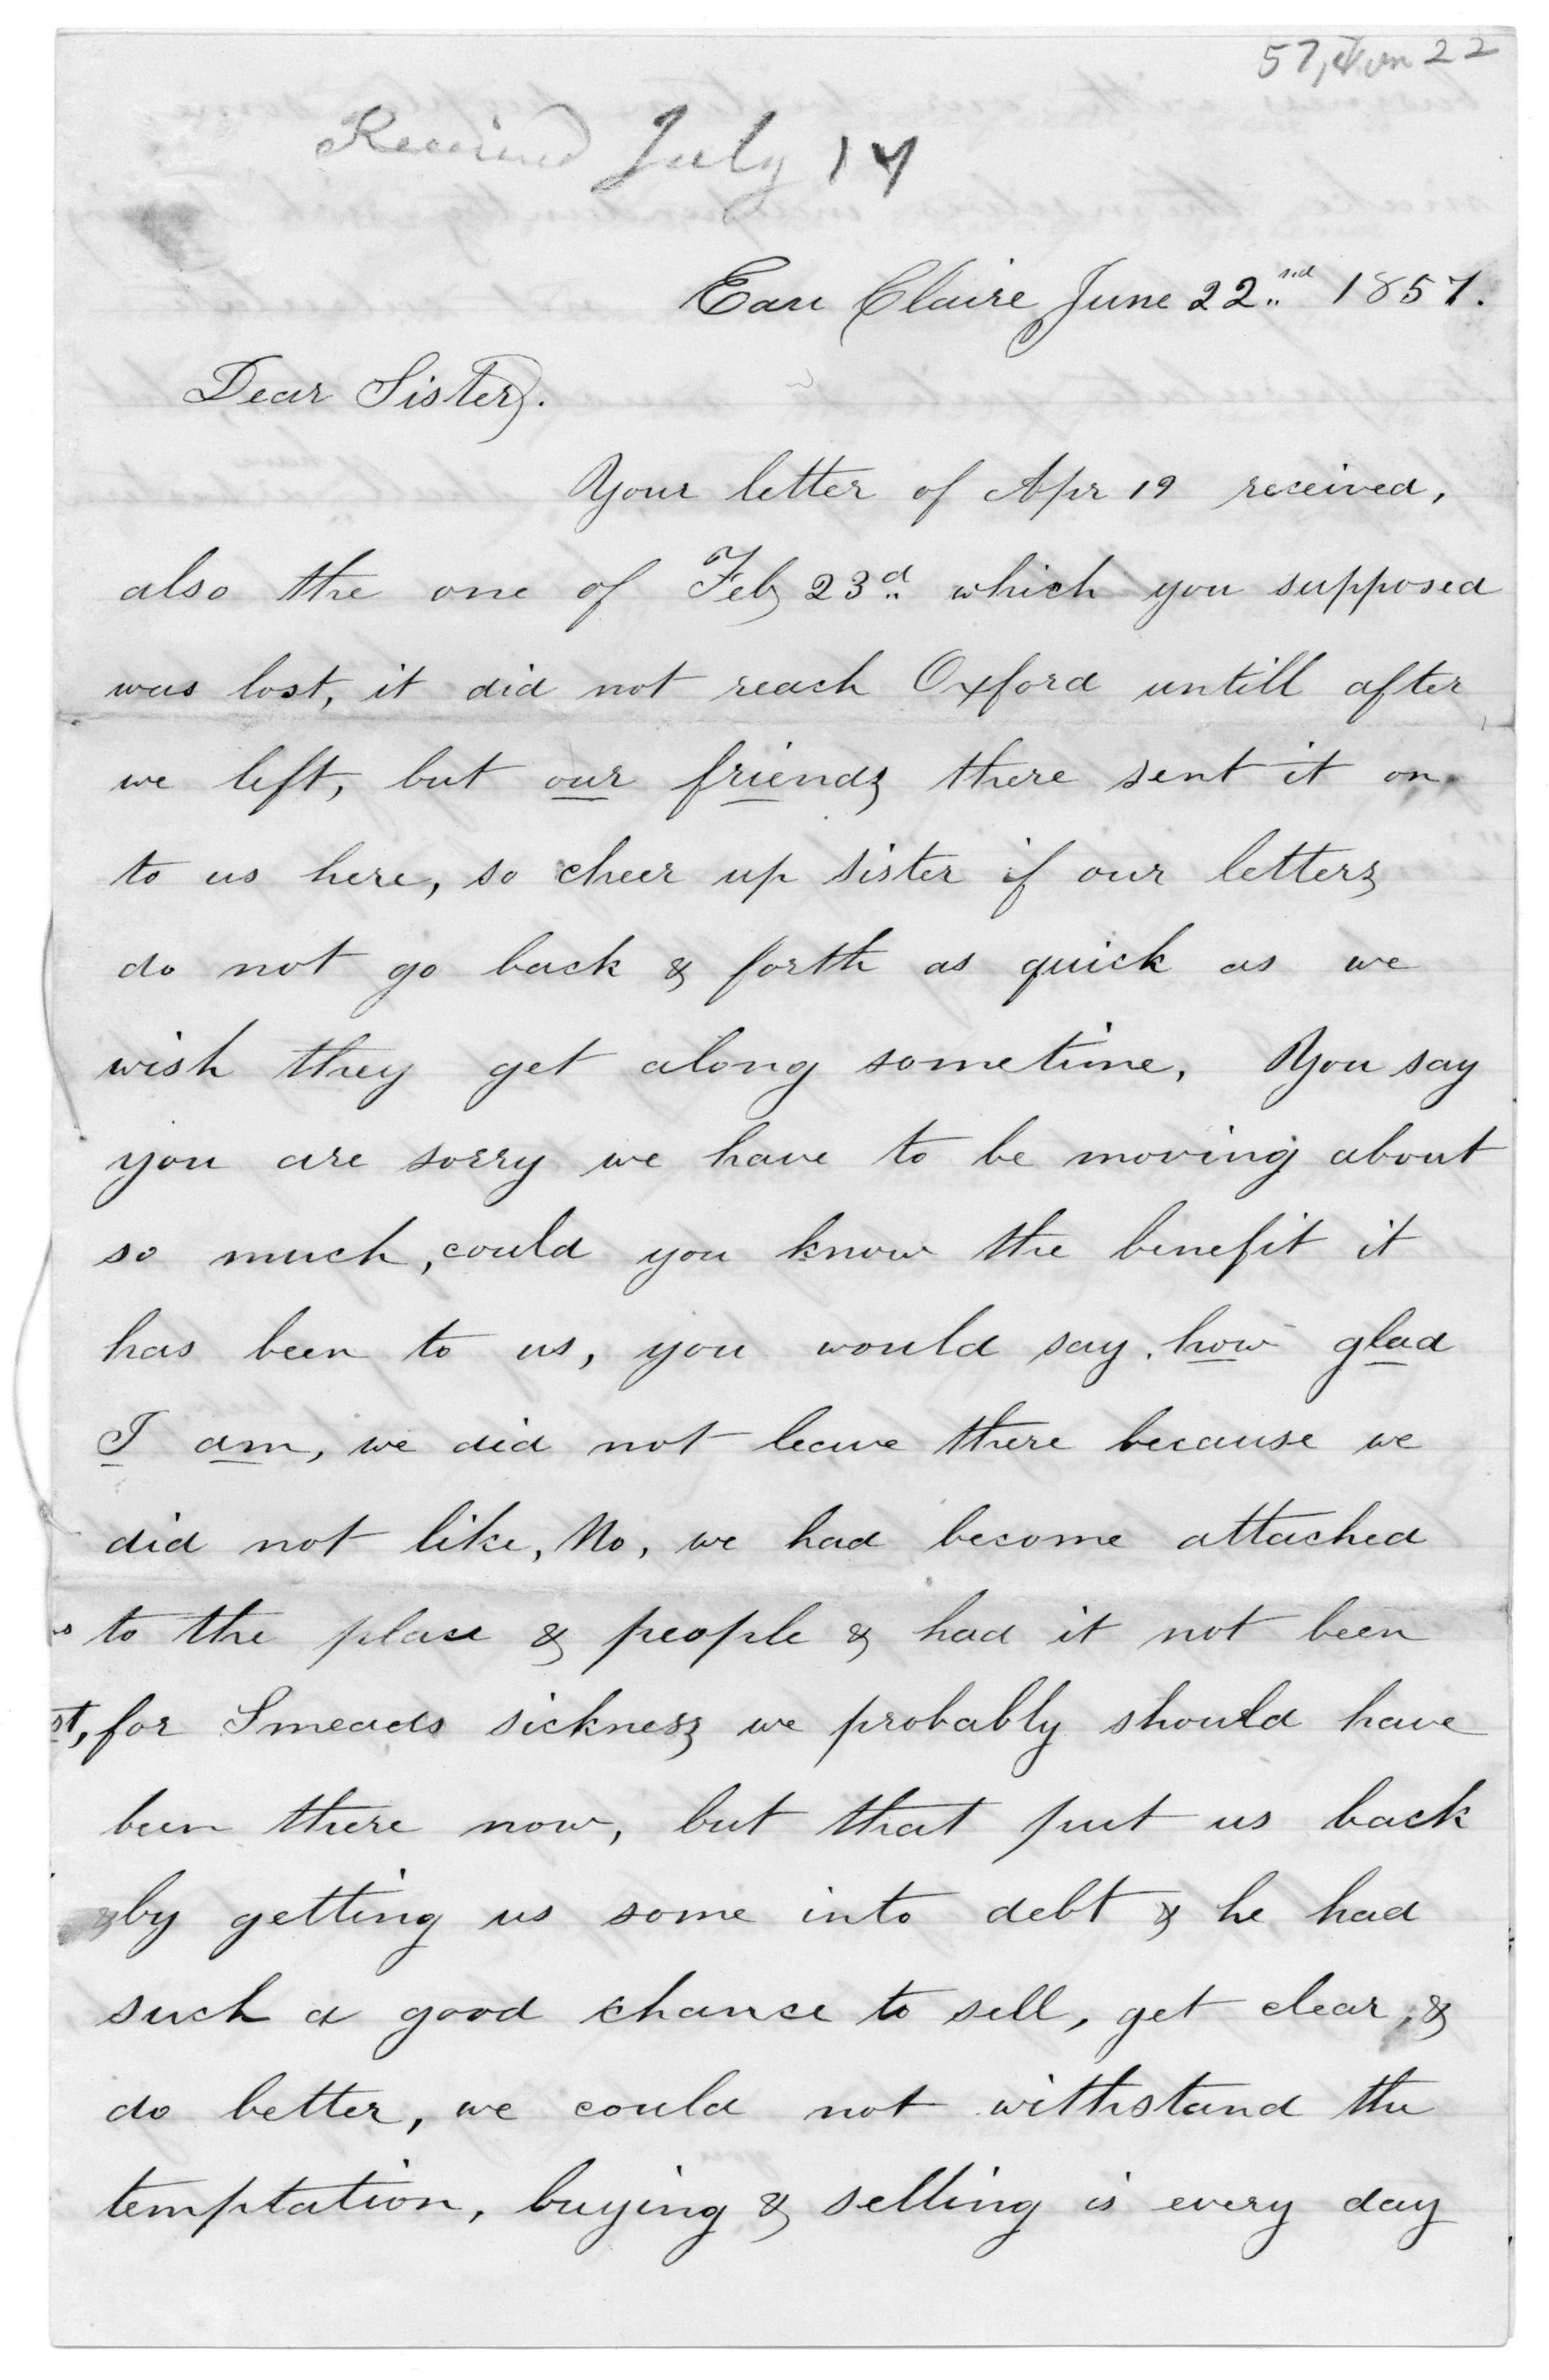 57, Jun 22
Received July 14
Eau Claire June 22nd 1857.
Dear Sister.
Your letter of Apr 19 received,
also the one of Feb 23d which you supposed
was lost, it did not reach Oxford untill after
we left, but our friends there sent it on
to us here, so cheer up sister if our letters
do not go back & forth as quick as we
wish they get along sometime, You say
you are sorry we have to be moving about
so much, could you know the benefit it
has been to us, you would say, how glad
I am, we did not leave there because we
did not like, No, we had become attached
to the place & people & had it not been
st, for Smeads sickness we probably should have
been there now, but that put us back
& by getting us some into debt & he had
such a good chance to sell, get clear, &
do better, we could not withstand the
temptation, buying & selling is every day